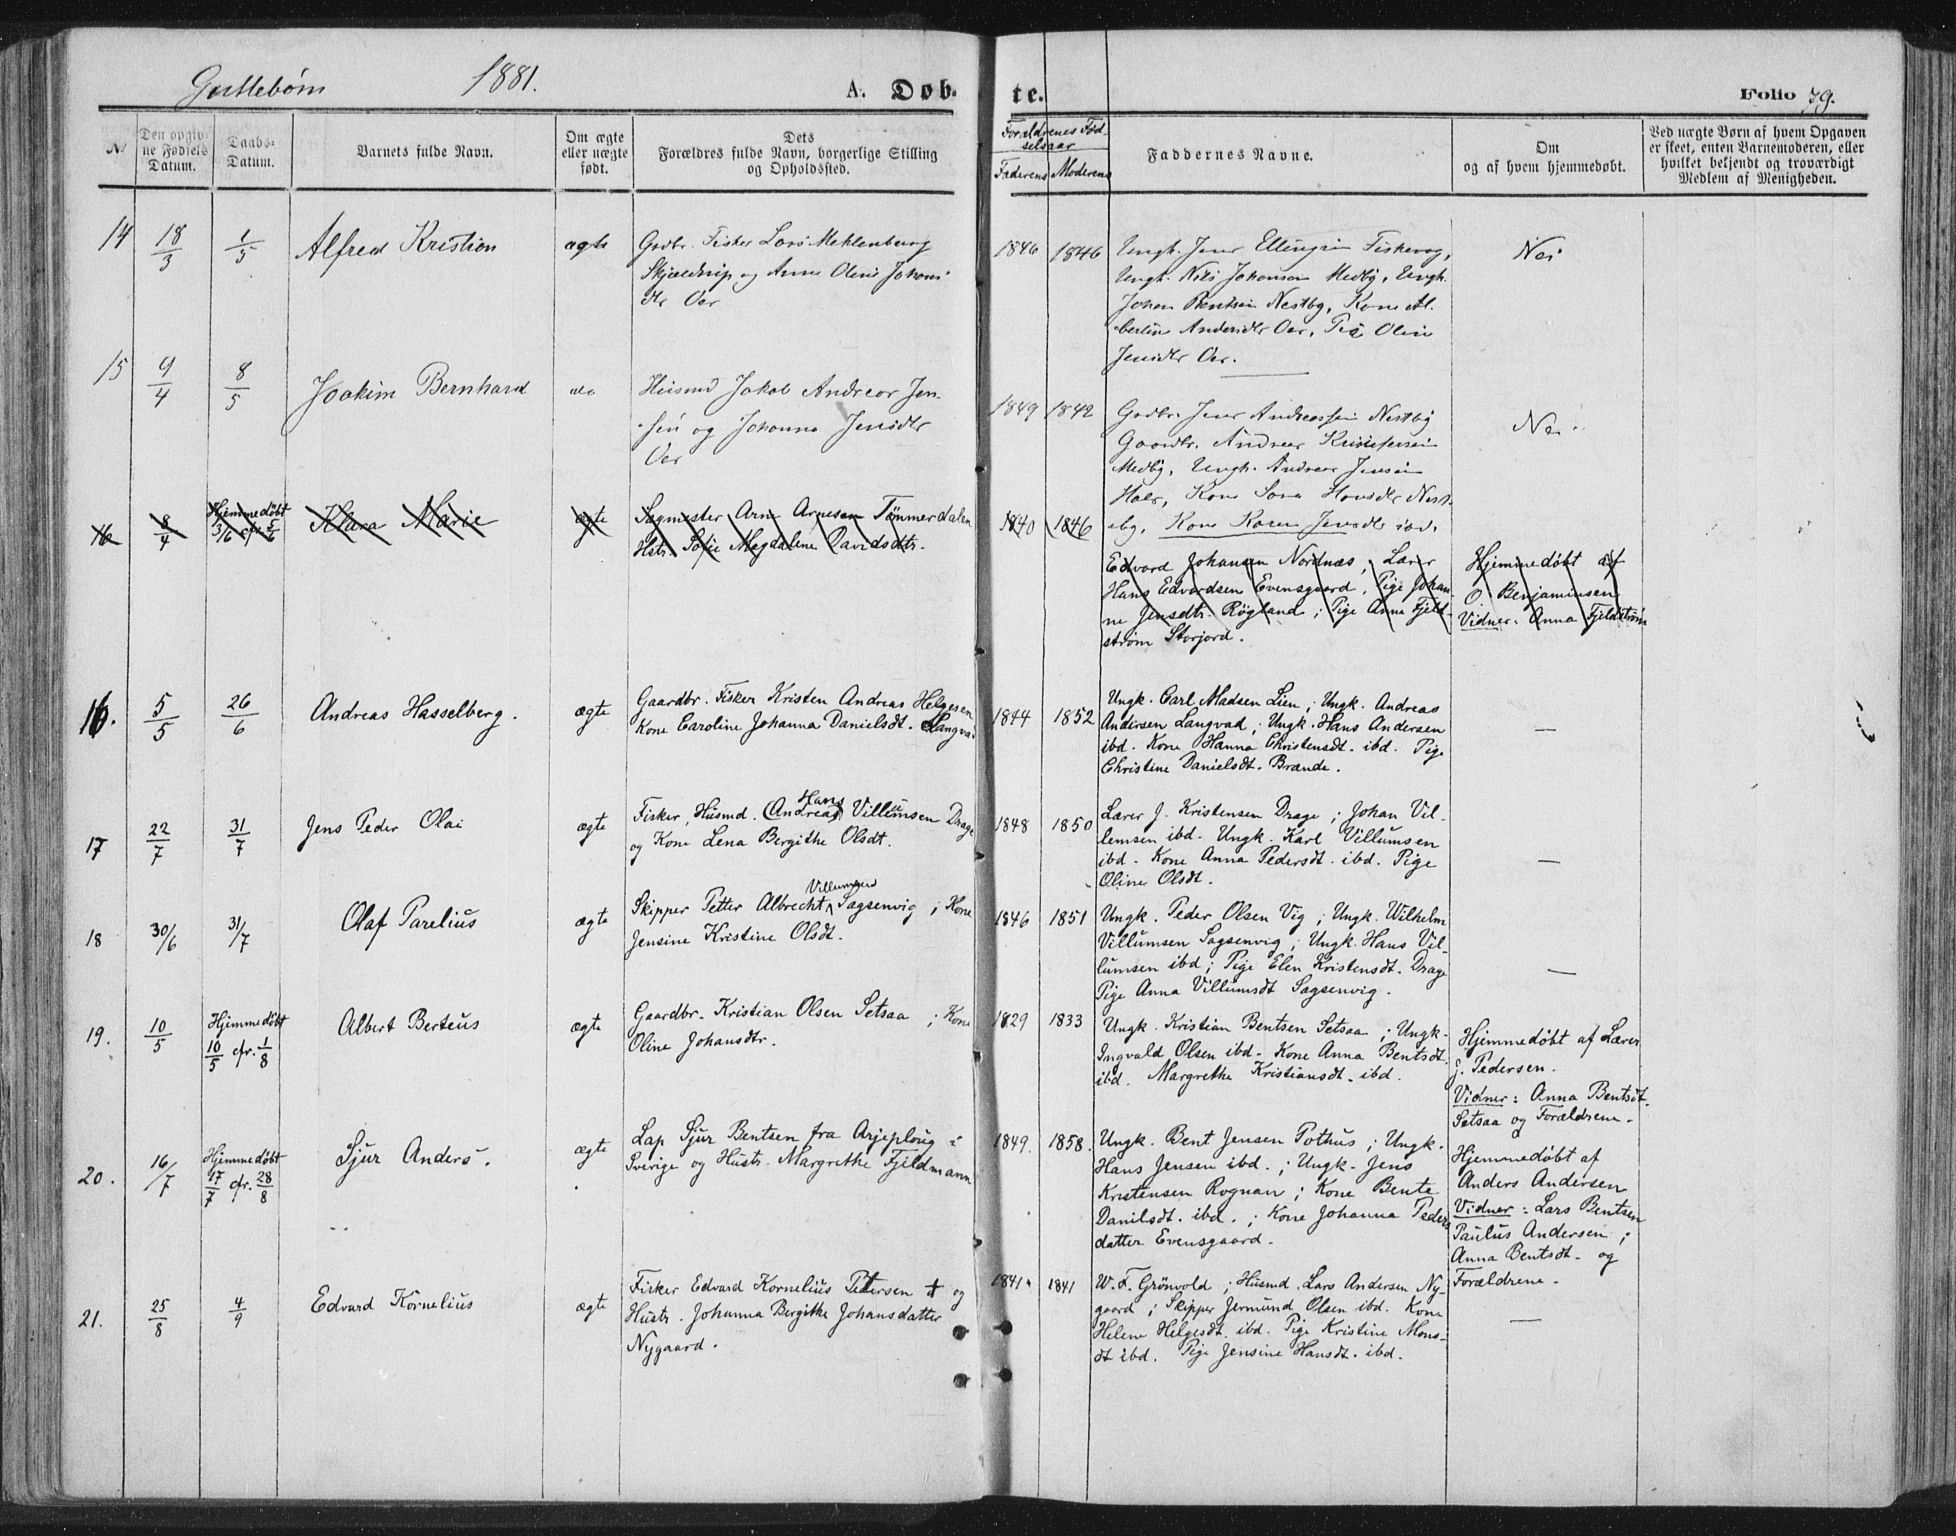 Guttebørn 1881. A. Døb- te. Folio 79.
No
Den opgiv-
ne Fødsels
Datum.
Daabs-
Datum.
Barnets fulde Navn.
Om ægte
eller uægte
født.
Dets
Forældres fulde Navn, borgerlige Stilling
og Opholdssted.
Forældrenes Fød-
selsaar
Faderens Moderens
Faddernes Navne.
Om
og af hvem hjemmedøbt.
Ved uægte Børn af hvem Opgaven
er skeet, enten Barnemoderen, eller
hvilket bekjendt og troværdigt
Medlem af Menigheden.
14
18/3
1/5
Alfred Kristian
ægte
Grdbr. Fisker Lars Mehlenberg
Skjeldrup og Anne Oline Johans-
dtr Oer
1846 1846
Ungk. Jens Ellingsen Fiskevog,
Ungk. Nils Johansen Medby, Ungk.
Johan Bentsen Nestby, Kone Al-
bertine Andersdtr Oer, Pige Oline
Jensdtr Oer.
Nei
15
9/4
8/5
Joakim Bernhard
do
Husmd Jakob Andreas Jen-
sen og Johanna Jensdtr
Oer
1849 1842
Grdbr. Jens Andreassen Nestby
Gaardbr. Andreas Kristofersen
Medby, Ungk. Andreas Jensen
Hals, Kone Sara Hansdtr Nest-
by, Kone Karen Jensdtr ibd.
Nei.
16
8/4
Hjemmedøbt
3/6 cfr. 5/6
Klara Marie
ægte
Sagmester Arne Arnesen Tømmerdalen
Hstr. Sofie Magdalene Davidsdtr.
1840 1846
Edvard Johansen Nordnæs, Lærer
Hans Edvardsen Evensgaard, Pige Johan-
ne Jensdtr. Røgland; Pige Anne Fjeld-
strøm Storjord.
Hjemmedøbt af
O. Benjaminsen
Vidner: Anna Fjeldstrøm
16.
5/5
26/6
Andreas Hasselberg.
ægte
Gaardbr. Fisker Kristen Andreas Helgesen
Kone Caroline Johanna Danielsdt. Langvad
1844 1852
Ungk. Carl Madsen Lien; Ungk. Andreas
Andersen Langvad; Ungk. Hans Andersen
ibd. Kone Hanna Christensdt. ibd. Pige
Christine Danielsdt. Brænde.
—
17
22/7
31/7
Jens Peder Olai
ægte
Fisker, Husmd. (Andreas) Hans Villumsen Drage
og Kone Lena Bergithe Olsdt.
1848 1850
Lærer J. Kristensen Drage; Johan Vil-
lemsen ibd. Ungk. Karl Villumsen
ibd. Kone Anna Pedersdt. ibd. Pige
Oline Olsdt.
—
18
30/6
31/7
Olaf Parelius
ægte
Skipper Petter Albrecht Villumsen Sagsenvig; Kone
Jensine Kristine Olsdt.
1846 1851
Ungk. Peder Olsen Vig; Ungk. Wilhelm
Villumsen Sagsenvig; Ungk. Hans Vil-
lumsen ibd; Pige Elen Kristensdt. Drage
Pige Anna Villumsdt Sagsenvig.
—
19.
10/5
Hjemmedøbt
10/5 cfr. 1/8
Albert Berteus
ægte
Gaardbr. Kristian Olsen Setsaa; Kone
Oline Johansdtr.
1829 1833
Ungk. Kristian Bentsen Setsaa; Ungk.
Ingvald Olsen ibd. Kone Anna Bentsdt.
ibd. Margrethe Kristiansdt. ibd.
Hjemmedøbt af Lærer
J. Pedersen.
Vidner: Anna Bentsdt.
Setsaa og Forældrene.
20.
16/7
Hjemmedøbt
17/7 cfr. 28/8
Sjur Anders.
ægte
Lap Sjur Bentsen fra Arjeploug i
Sverige og Hustr. Margrethe Fjeldmann
1849. 1858.
Ungk. Bent Jensen Pothus; Ungk.
Hans Jensen ibd.; Ungk. Jens
Kristensen Rognan; Kone Bente
Danilsdt. ibd.; Kone Johanna Peders
datter Evensgaard.
Hjemmedøbt af
Anders Andersen
Vidner: Lars Bentsen
Paulus Andersen;
Anna Bentsdt. og
Forældrene.
21.
25/8
4/9
Edvard Kornelius
ægte
Fisker Edvard Kornelius Petersen + og
Hustr. Johanna Bergithe Johansdatter
Nygaard.
1841. 1841
W. F. Grönvold; Husmd. Lars Andersen Ny-
gaard; Skipper Jermund Olsen ibd. Kone
Helene Helgesdt. ibd. Pige Kristine Mons-
dt ibd. Pige Jensine Hansdt. ibd.
—